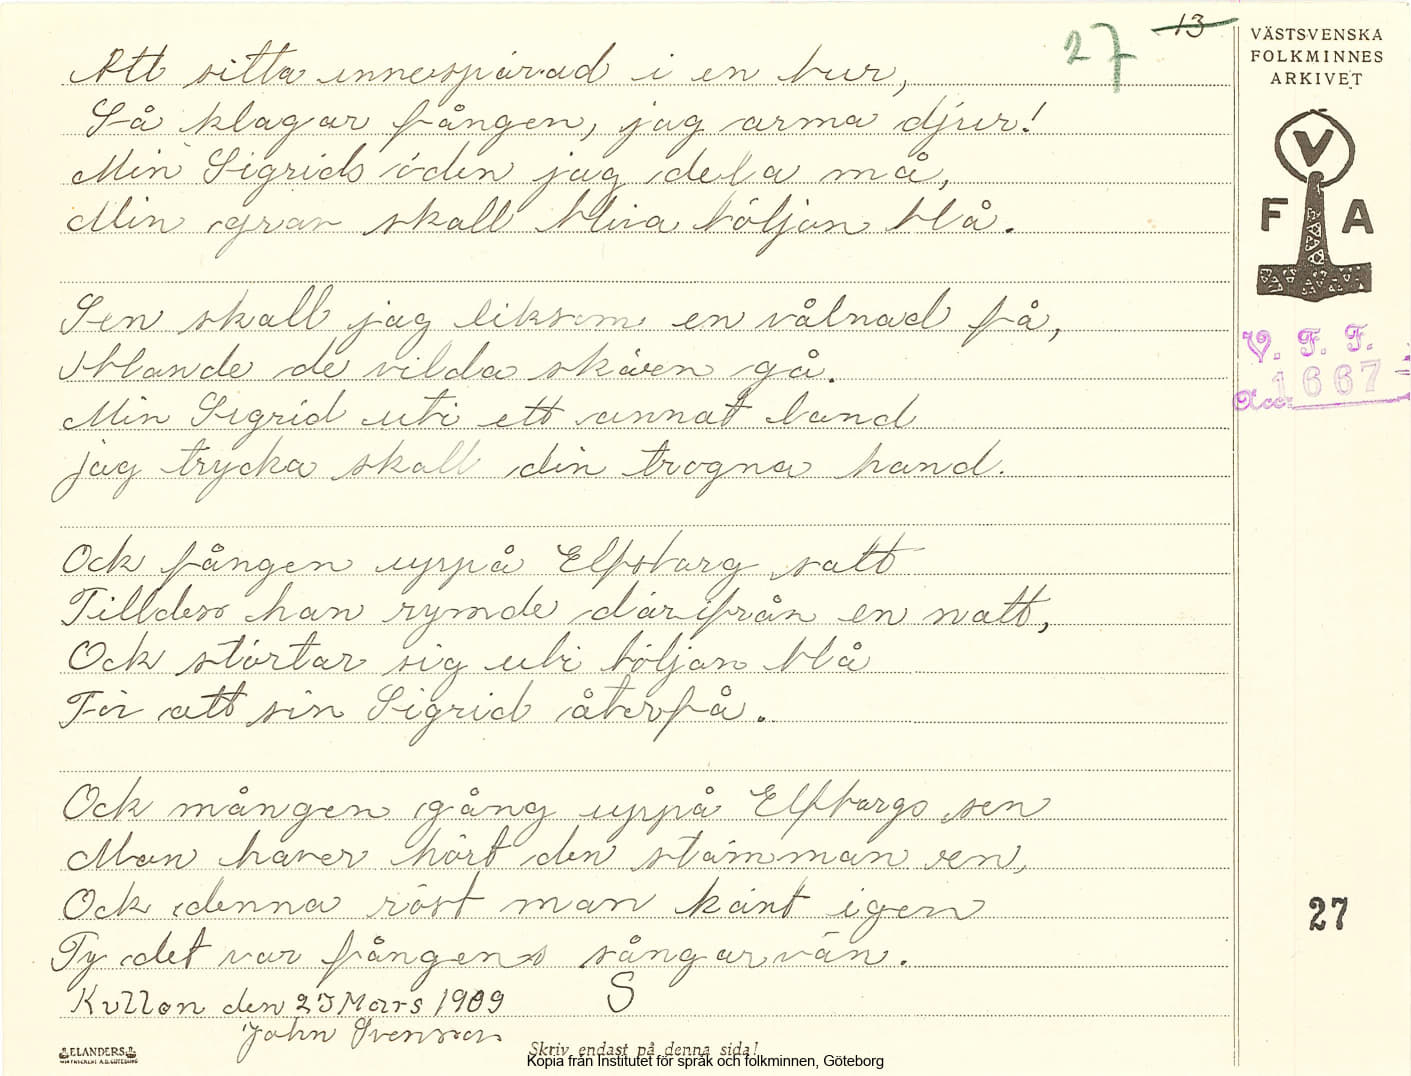 27 13
VÄSTSVENSKA
FOLKMINNES
ARKIVET
Att sitta innespärad i en bur,
Så klagar fången, jag arma djur!
Min Sigrids öden jag dela må,
Min grav skall bliva böljan blå.
V
F A
Sen skall jag liksom en vålnad få,
Iblande de vilda skären gå.
Min Sigrid uti ett annat land
jag trycka skall din trogna hand.
V. F. F.
Acc. 1667
Ock fången uppå Elfsbarg satt
Tilldess han rymde därifrån en natt,
Ock störtar sig uti böljan blå
För att sin Sigrid återfå.
Ock mången gång uppå Elfbargs sen
Man haver hört den stämman ren,
Ock denna röst man känt igen
Ty det var fångens sångarvän.
27
Kullen den 23 Mars 1909 S
John Svenson
ELANDERS
Skriv endast på denna sida!
Kopia från Institutet för språk och folkminnen, Göteborg